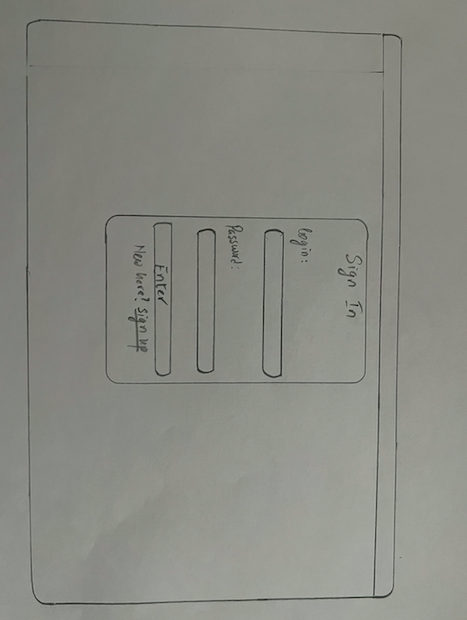 Sign In
Login:
Password:
Enter
New here? Sign up